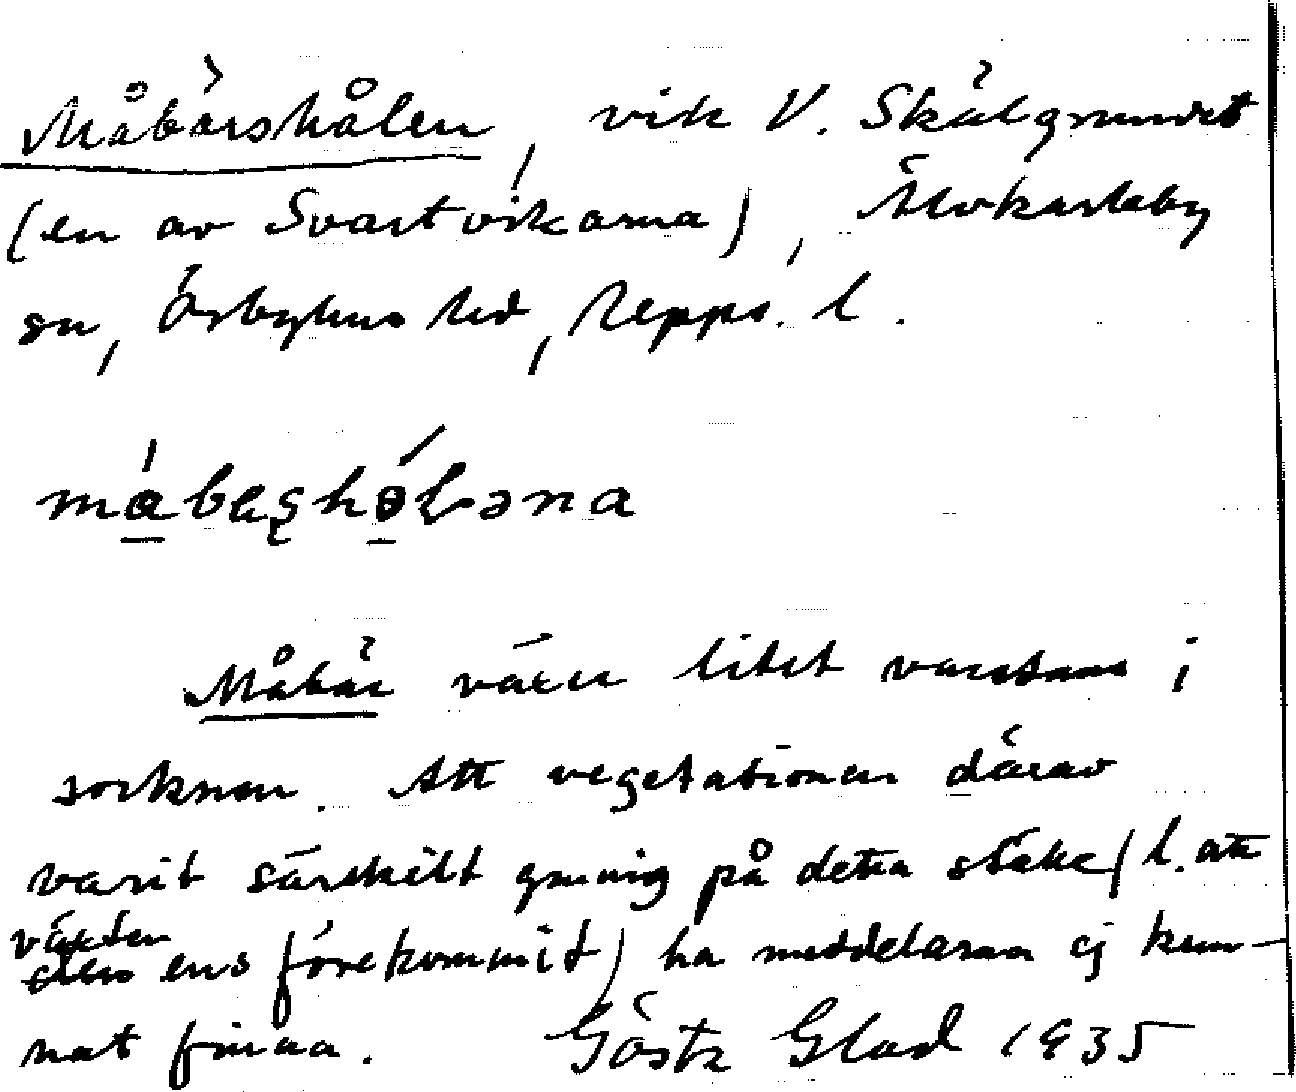 Måbärshålen, vik V. Skälgrundet
(en av Svartvikarna), Älvkarleby
sn, Örbyhus hd, Upps. l.
Måbär växer litet varstans i
socknen. Att vegetationen därav
varit särskilt gynnig på detta ställe (l. att
växten
ens förekommit) ha meddelarna ej kun-
nat finna. Gösta Glad 1935